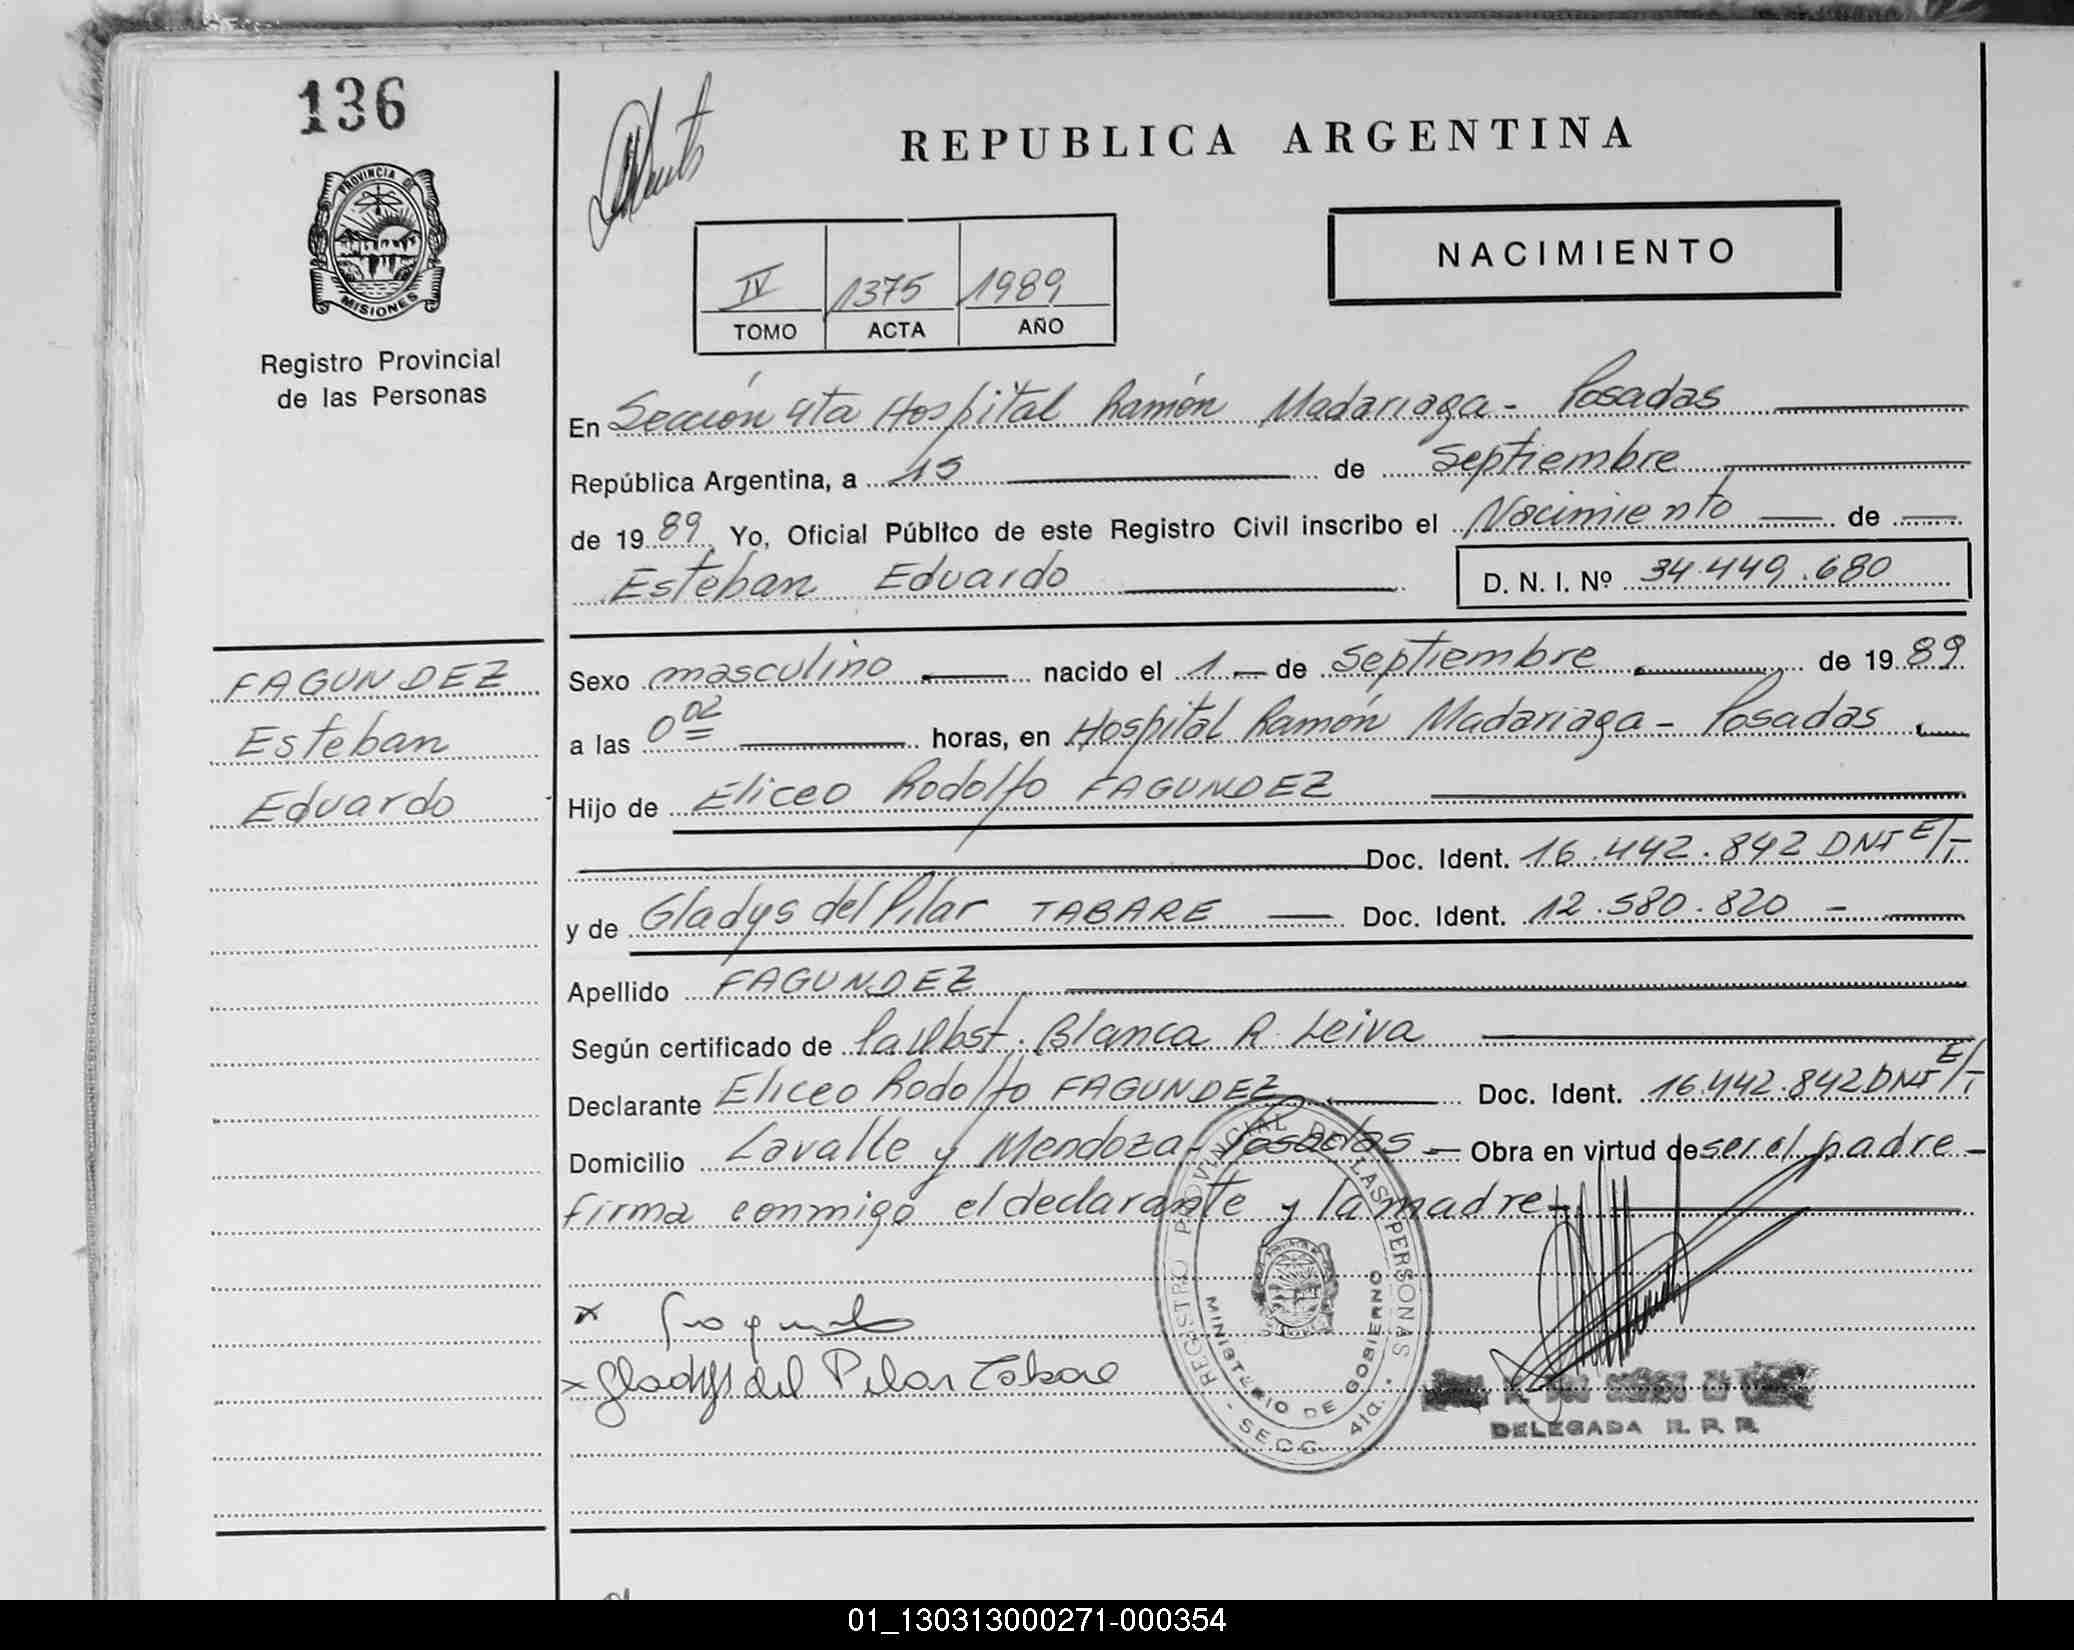 136
PROVINCIA DE
MISIONES
Registro Provincial
de las Personas
REPUBLICA ARGENTINA
NACIMIENTO
IV 1375 1989
TOMO ACTA AÑO
En Sección 4ta Hospital Ramón Madariaga - Posadas
República Argentina, a 15 de Septiembre
de 19 89 Yo, Oficial Público de este Registro Civil inscribo el Nacimiento de
Esteban Eduardo D. N. I. Nº 34.449.680
FAGUNDEZ
Esteban
Eduardo
Sexo masculino nacido el 1 de Septiembre de 19 89
a las 0 02 horas, en Hospital Ramón Madariaga - Posadas
Hijo de Eliceo Rodolfo FAGUNDEZ
Doc. Ident. 16.442.842 DNI E/T
y de Gladys del Pilar TABARE Doc. Ident. 12.580.820 -
Apellido FAGUNDEZ
Según certificado de la Obst. Blanca R. Leiva
Declarante Eliceo Rodolfo FAGUNDEZ Doc. Ident. 16.442.842 DNI E/T
Domicilio Lavalle y Mendoza - Posadas - Obra en virtud de ser el padre -
firma conmigo el declarante y la madre -
x
x Gladys del Pilar Tabare
REGISTRO PROVINCIAL DE LAS PERSONAS
MINISTERIO DE GOBIERNO
- SECC. 4ta. -
DELEGADA R. P. P.
01_130313000271-000354